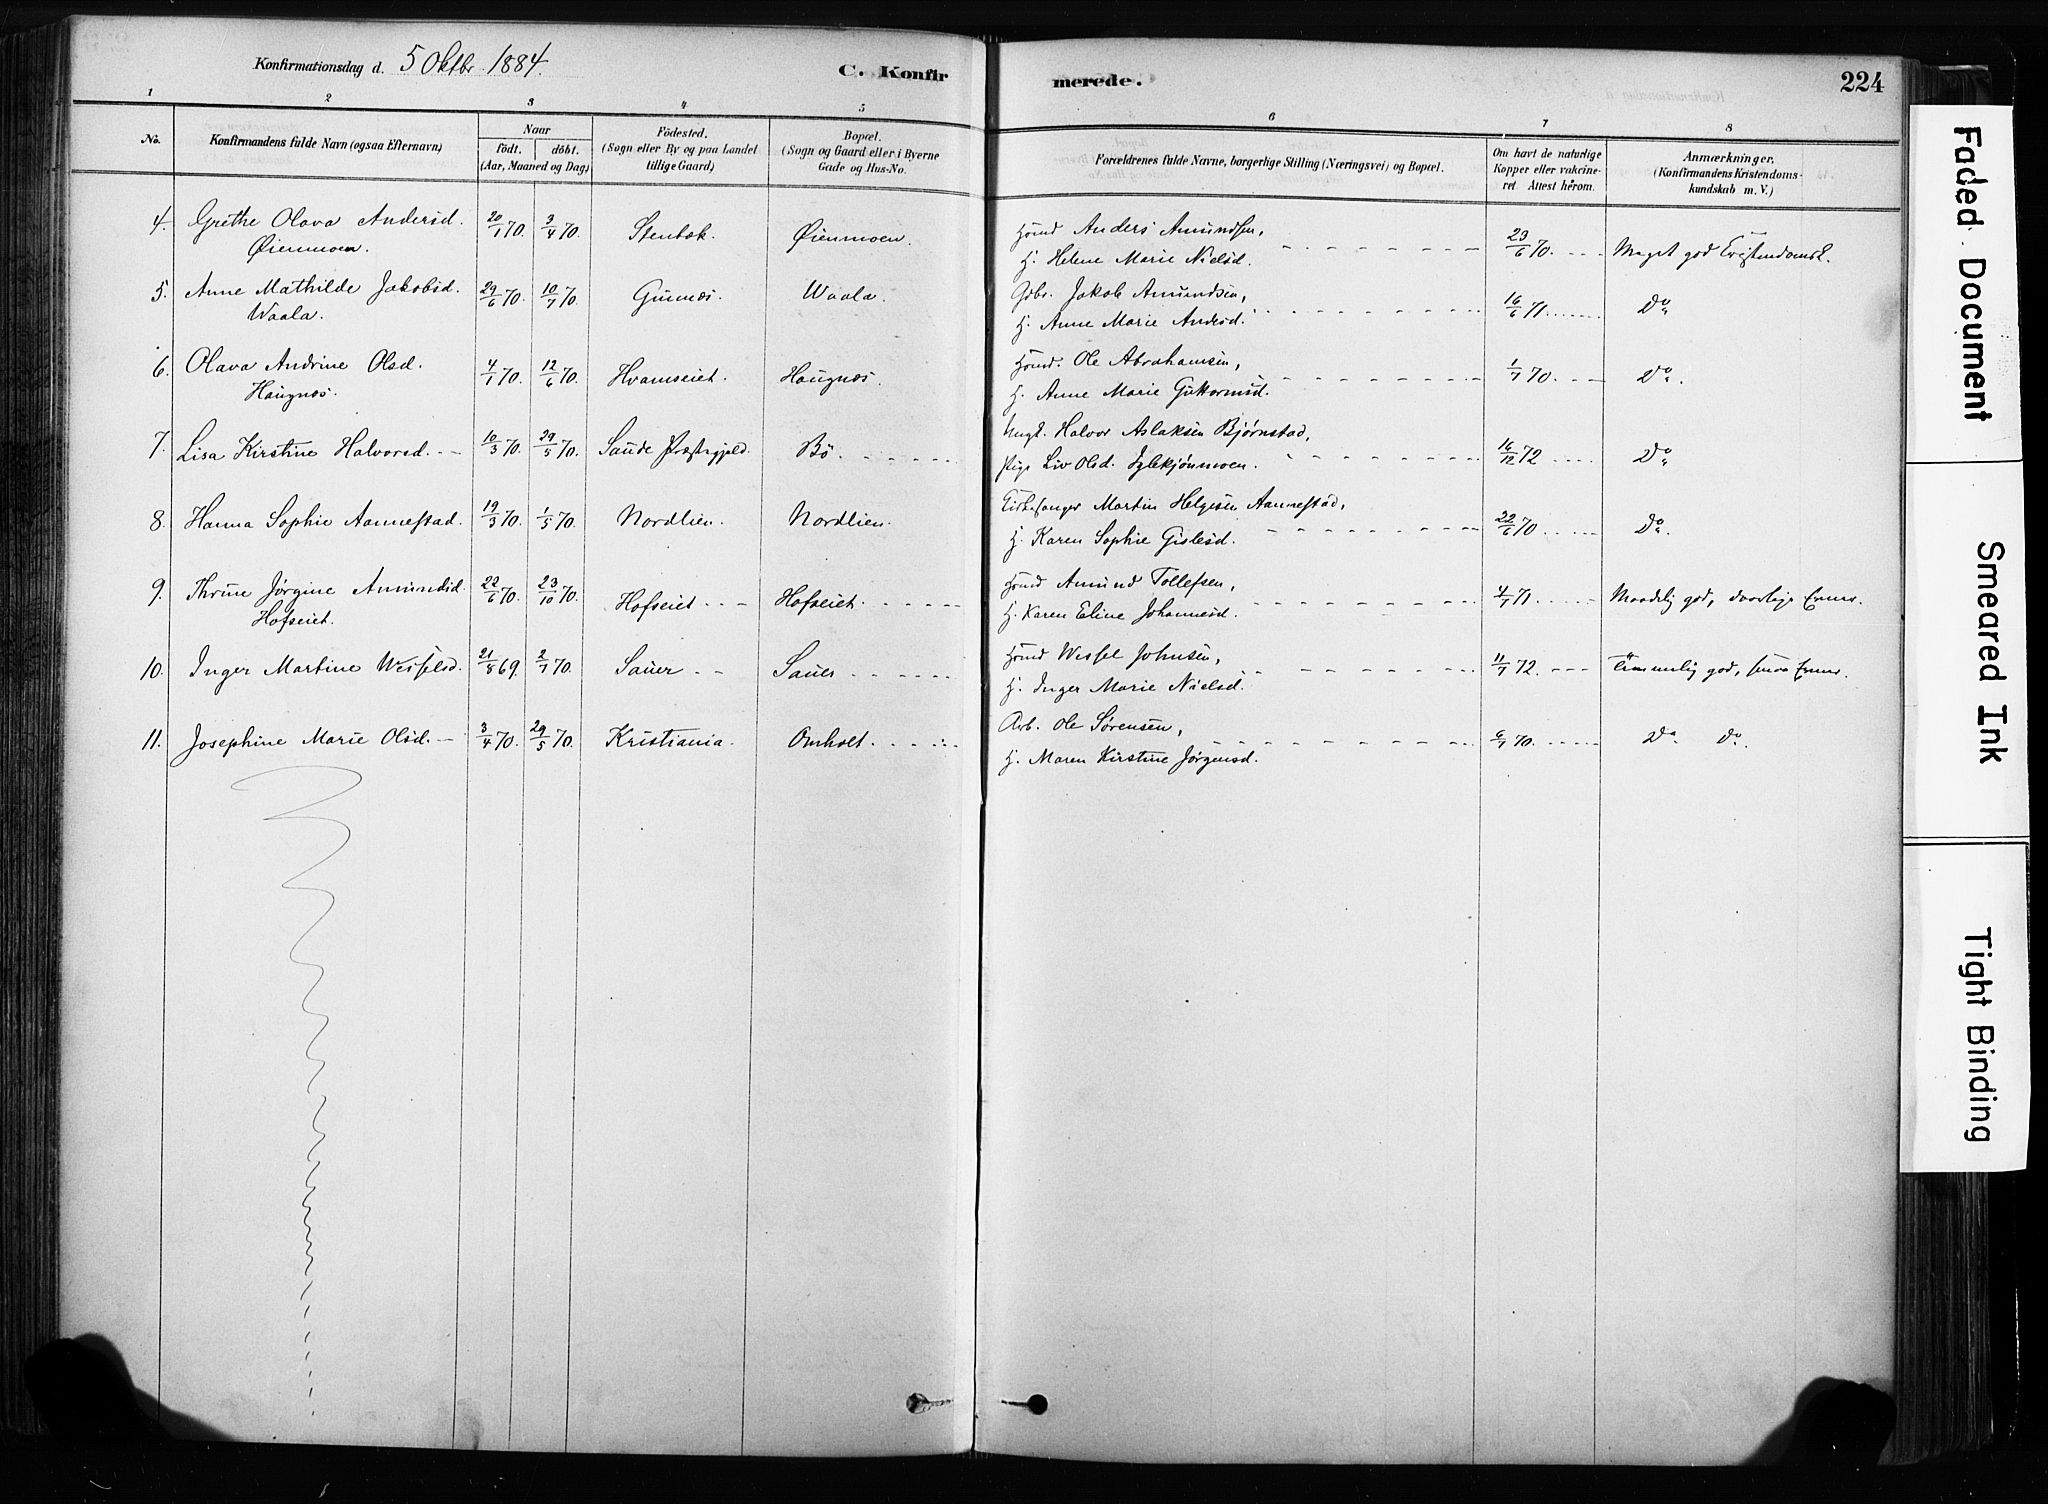 Konfirmationsdag d. 5 Oktbr 1884.
C. Konfir
merede.
224
1 2 3 4 5 6 7 8
No.
Konfirmandens fulde Navn (ogsaa Efternavn)
Naar
födt. döbt.
(Aar, Maaned og Dag)
Födested.
(Sogn eller By og paa Landet
tillige Gaard)
Bopæl.
(Sogn og Gaard eller i Byerne
Gade og Hus-No.
Forældrenes fulde Navne, borgerlige Stilling (Næringsvei) og Bopæl.
Om havt de naturlige
Kopper eller vakcine-
ret Attest herom.
Anmærkninger.
(Konfirmandens Kristendoms-
kundskab m. V.)
4. Grethe Olava Andersd. 20/1 70. 3/4 70. Stenbæk. Øienmoen. Hsmd Anders Amundsen, 23/6 70. Meget god Cristendomsk.
Øienmoen. H. Helene Marie Nielsd.
5. Anne Mathilde Jakobsd. 29/6 70. 10/7 70. Gunnæs. Waala. Gdbr. Jakob Amundsen, 16/6 71. Do
Waala. H. Anne Marie Andersd.
6. Olava Andrine Olsd. 4/1 70. 12/6 70. Hvamseiet. Haugnæs. Hsmd. Ole Abrahamsen, 1/7 70. Do.
Haugnæs. H. Anne Marie Guttormsd.
7. Lisa Kirstine Halvorsd. 10/3 70. 29/5 70. Saude Præstegjeld. Bö. Ungk. Halvor Aslaksen Bjørnstad, 16/12 72 Do
Pige Liv Olsd. Iglekjønmoen.
8. Hanna Sophie Aannestad. 19/3 70. 1/5 70. Nordlien. Nordlien. Kirkesanger Martin Helgesen Aannestad, 22/6 70. Do.
H. Karen Sophie Gislesd.
9. Thrine Jørgine Amundsd. 22/6 70. 23/10 70. Hofseiet Hofseiet. Hsmd Amund Tollefsen, 4/7 71. Maadelig god, daarlige Evner.
Hofseiet. H. Karen Eline Johannesd.
10. Inger Martine Wesselsd. 21/8 69. 2/1 70. Sauer Sauer Hsmd Wessel Johnsen, 11/7 72. Temmelig god, smaa Evner.
H. Inger Marie Nielsd.
11. Josephine Marie Olsd. 3/4 70. 29/5 70. Kristiania. Omholt. Arb. Ole Sørensen, 6/7 70. Do Do.
H. Maren Kirstine Jørgensd.
Faded Document
Smeared Ink
Tight Binding